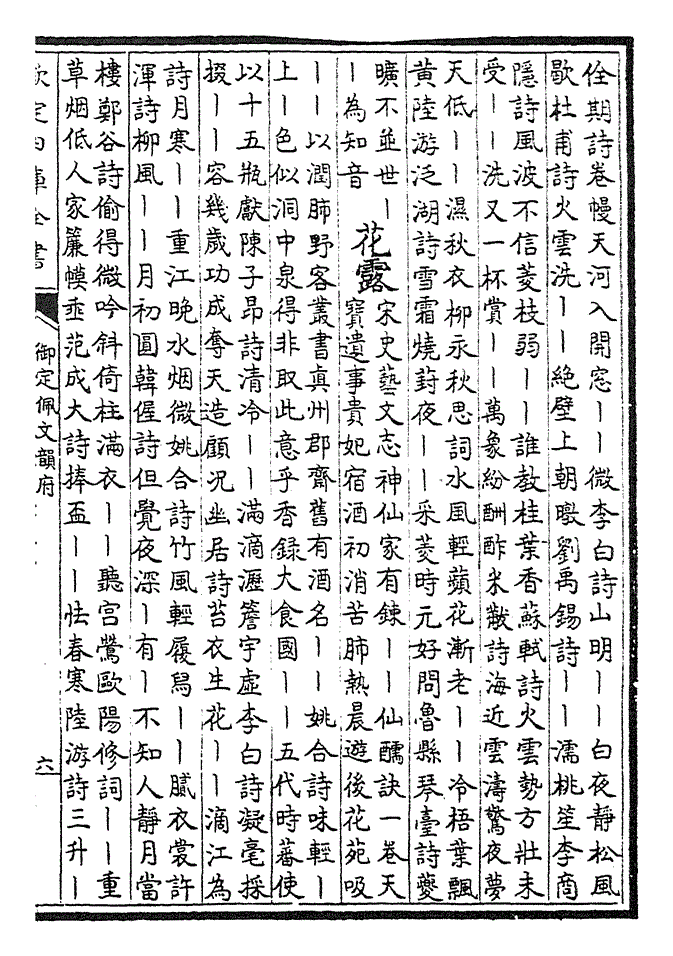 佺期詩卷幔天河入開窓丨丨微李白詩山明丨丨白夜静松風
歇杜甫詩火雲洗丨丨絶壁上朝暾劉禹錫詩丨丨濡桃笙李商
隱詩風波不信菱枝弱丨丨誰教桂葉香蘇軾詩火雲勢方壯未
受丨丨洗又一杯賞丨丨萬象紛酬酢米黻詩海近雲濤驚夜夢
天低丨丨濕秋衣柳永秋思詞水風輕蘋花漸老丨丨冷梧葉飄
黄陸游泛湖詩雪霜燒葑夜丨丨采菱時元好問魯縣琴臺詩夔
曠不並世丨
丨為知音
花露
宋史藝文志神仙家有錬丨丨仙醽訣一卷天
寶遺事貴妃宿酒初消苦肺熱晨遊後花苑吸
丨丨以潤肺野客叢書真州郡齋舊有酒名丨丨姚合詩味輕丨
上丨色似洞中泉得非取此意乎香録大食國丨丨五代時蕃使
以十五瓶獻陳子昂詩清冷丨丨滿滴瀝簷宇虛李白詩凝毫採
掇丨丨容幾歲功成奪天造顧况幽居詩苔衣生花丨丨滴江為
詩月寒丨丨重江晚水烟微姚合詩竹風輕履舄丨丨膩衣裳許
渾詩柳風丨丨月初圓韓偓詩但覺夜深丨有丨不知人静月當
樓鄭谷詩偷得微吟斜倚柱滿衣丨丨聽宫鶯歐陽修詞丨丨重
草烟低人家簾幙垂范成大詩捧盃丨丨怯春寒陸游詩三升丨
欽定四庫全書
御定佩文韻府
六